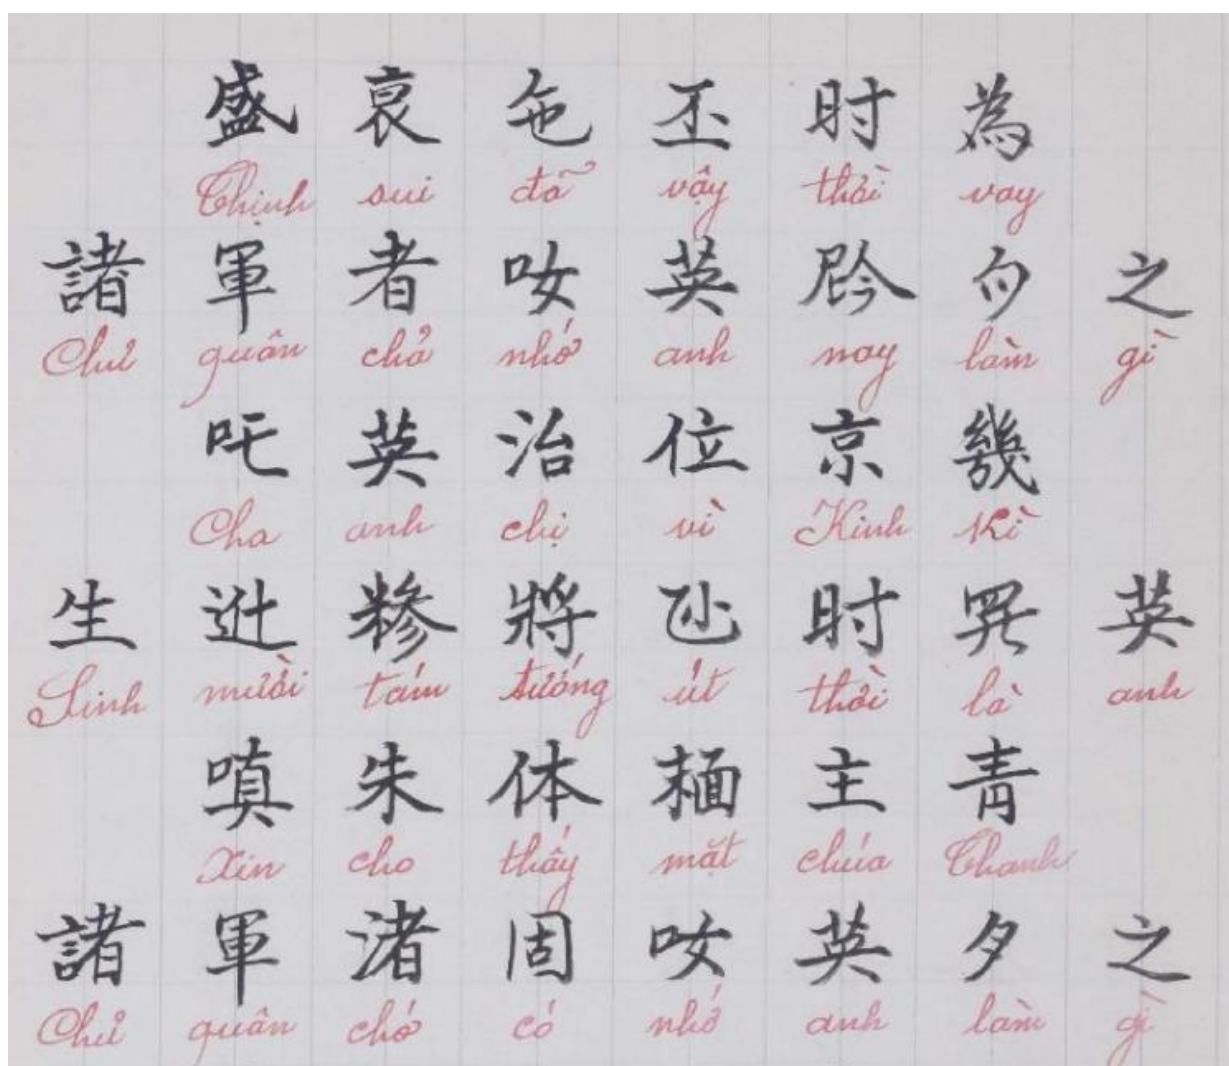 盛 衰 㐌 丕 时 為
Thịnh sui đã vậy thời vay
諸 軍 者 𠰃 英 𫢩 勹 之
Chư quân chả nhớ anh nay làm gì
吒 英 治 位 京 幾
Cha anh chị vì Kinh Kì
生 𨑮 糝 將 时 英
Sinh mười tám tướng út thời là anh
嗔 朱 体 𩈘 主 青
Xin cho thấy mặt chúa Thanh
諸 軍 渚 固 𠰃 英 夕 之
Chư quân chớ có nhớ anh làm gì